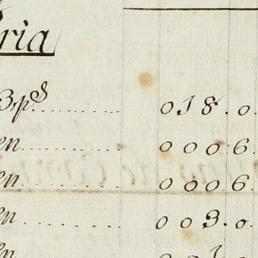 ria
3,,p^s 018.0
en 0006
en 0006
en 003.0
en